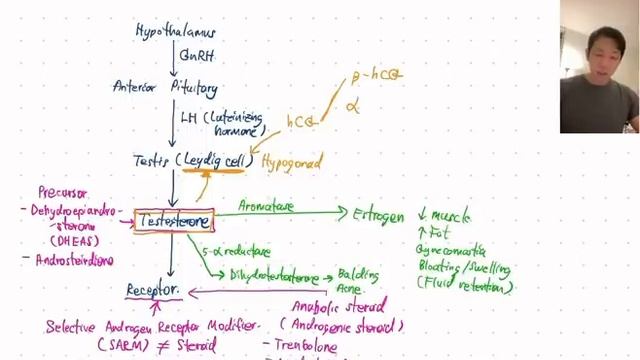 Hypothalamus
GnRH
Anterior Pituitary
LH (Luteinizing hormone)
β-hCG
α
hCG
Testis (Leydig cell)
Hypogonad
Precursor
- Dehydroepiandro-
sterone
(DHEAS)
- Androsteirdione
Testosterone
Aromatase
Estrogen
↓ muscle
↑ Fat
Gynecomastia
Bloating/Swelling
(Fluid retention)
5-α reductase
Dihydrotestosterone → Balding
Acne
Receptor
Anabolic steroid
(Androgenic steroid)
- Trenbolone
Selective Androgen Receptor Modifier
(SARM) ≠ Steroid